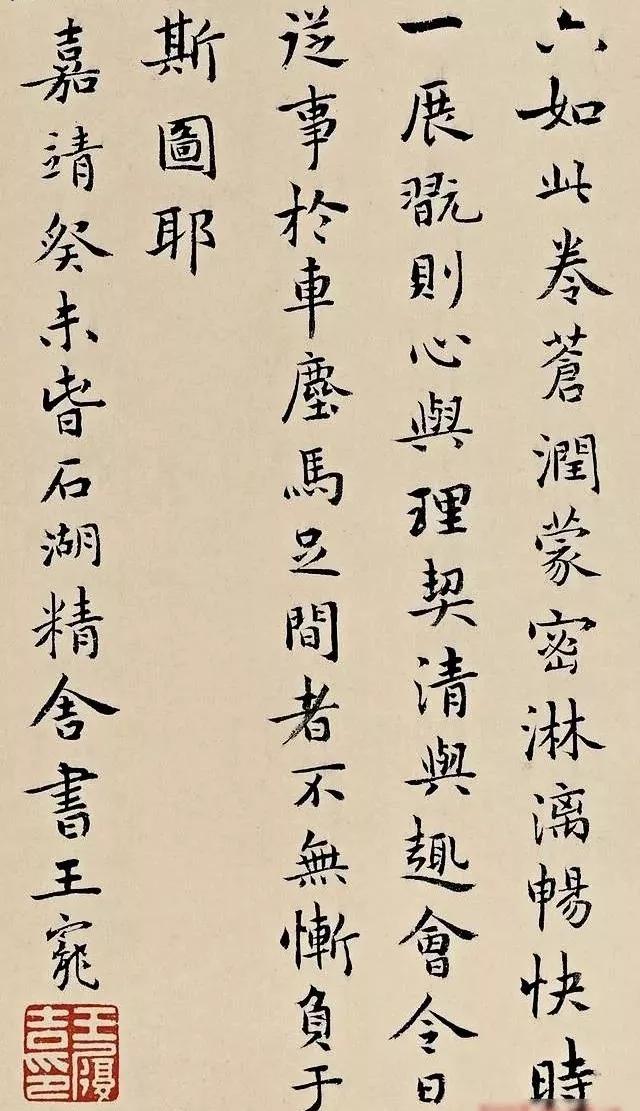 六如此卷蒼潤蒙密淋漓暢快時
一展翫則心與理契清與趣會今日
從事於車塵馬足間者不無慚負于
斯圖耶
嘉靖癸未旹石湖精舍書王寵
王履吉印